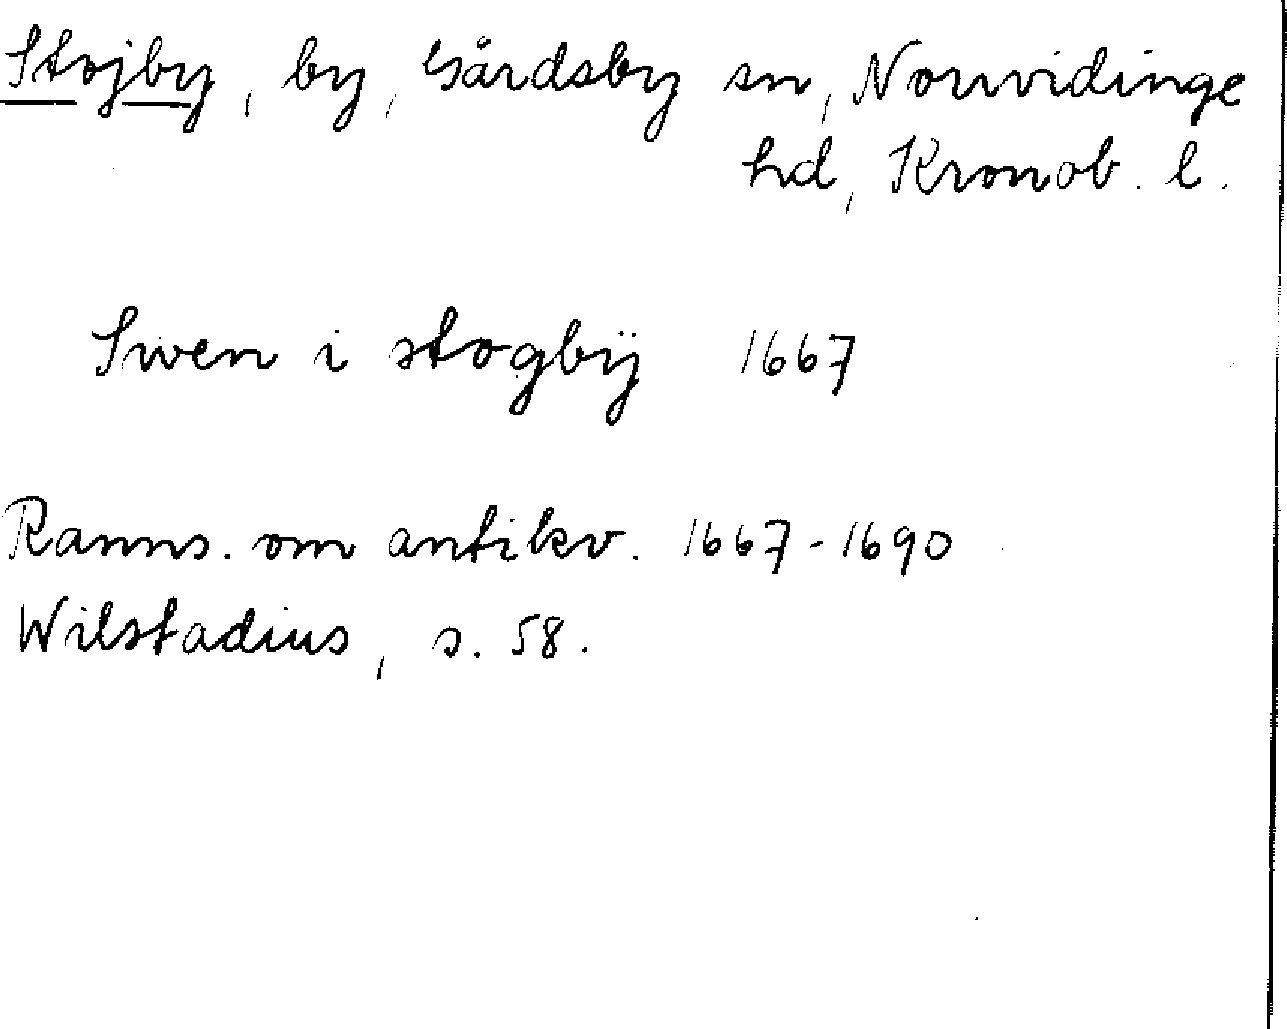 Stojby, by, Gårdsby sn, Norrvidinge
hd, Kronob. l.
Swen i stogbÿ 1667
Ranns. om antikv. 1667-1690
Wilstadius, s. 58.